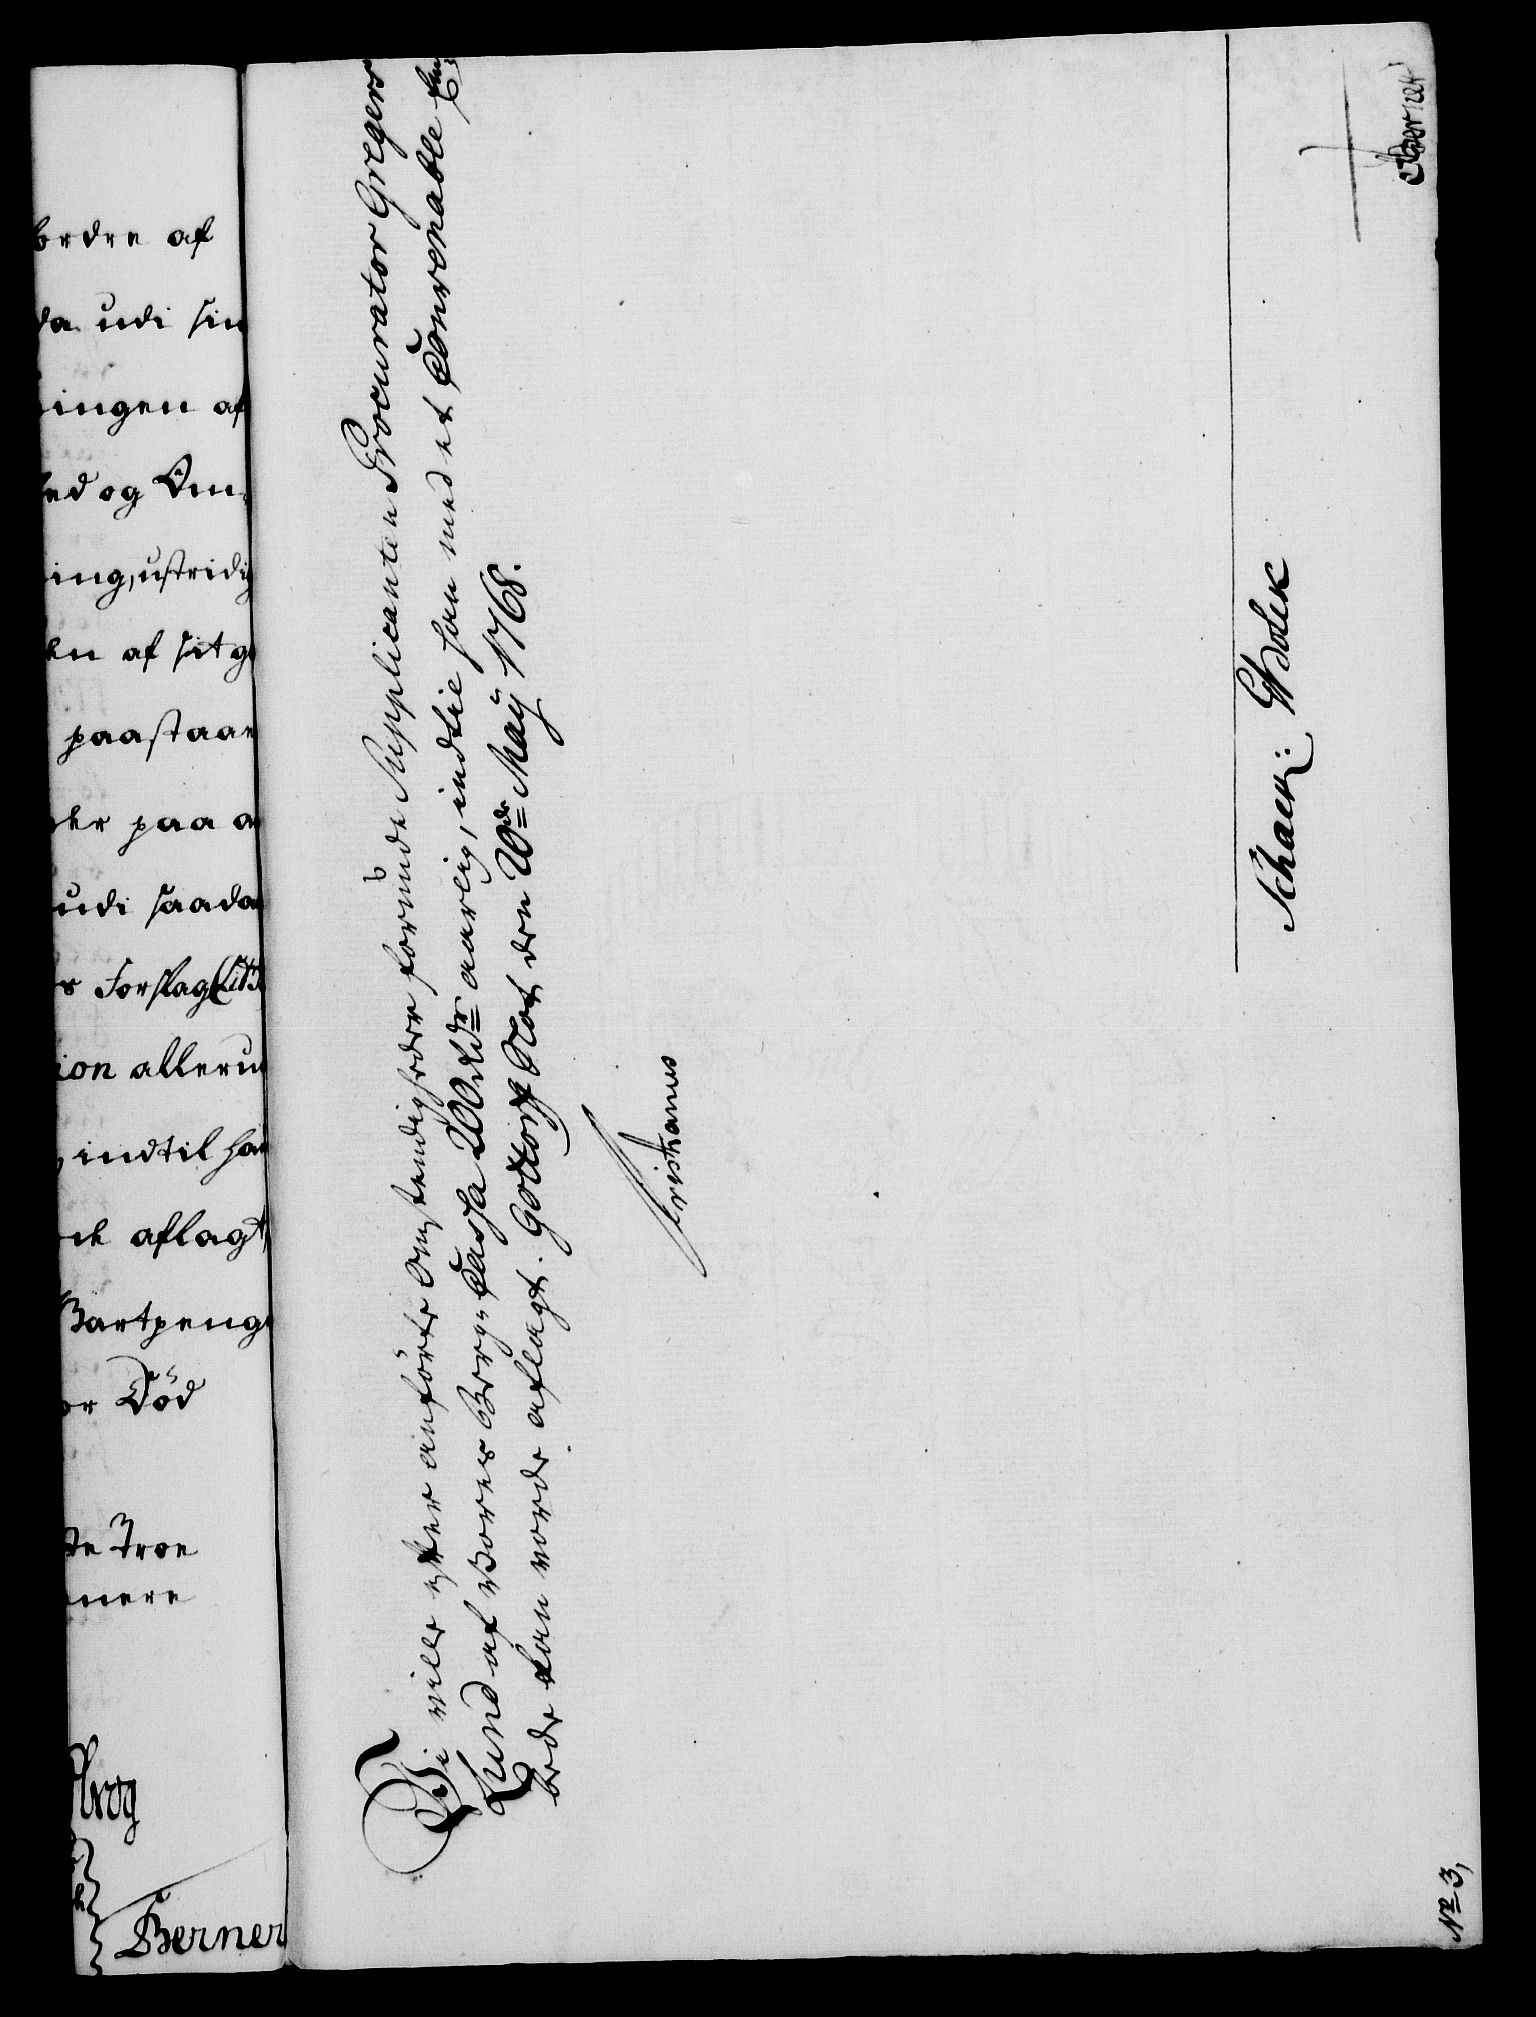 fordre af
da udi sin
ingen af
hed og Om-
ing, ustridig
en af sit g
paastaae
er paa a
udi saada
s Forslag (Litr
ion alleru
, indtil ha
ck aflagt
Vartpeng
or Död
te Troe
nere
Berner
Vi ville efter anförte Omstændigheder forunde Supplicanten Procurator Gregers
Lund af Vores Berg-Cassa 200 rdr aarlig, indtil han med et Convenable Em-
bede kan vorde aflagt. Gottorff Slot den 20de Maÿ 1768.
Christianus
Schack: Holck
Berner
No 3,